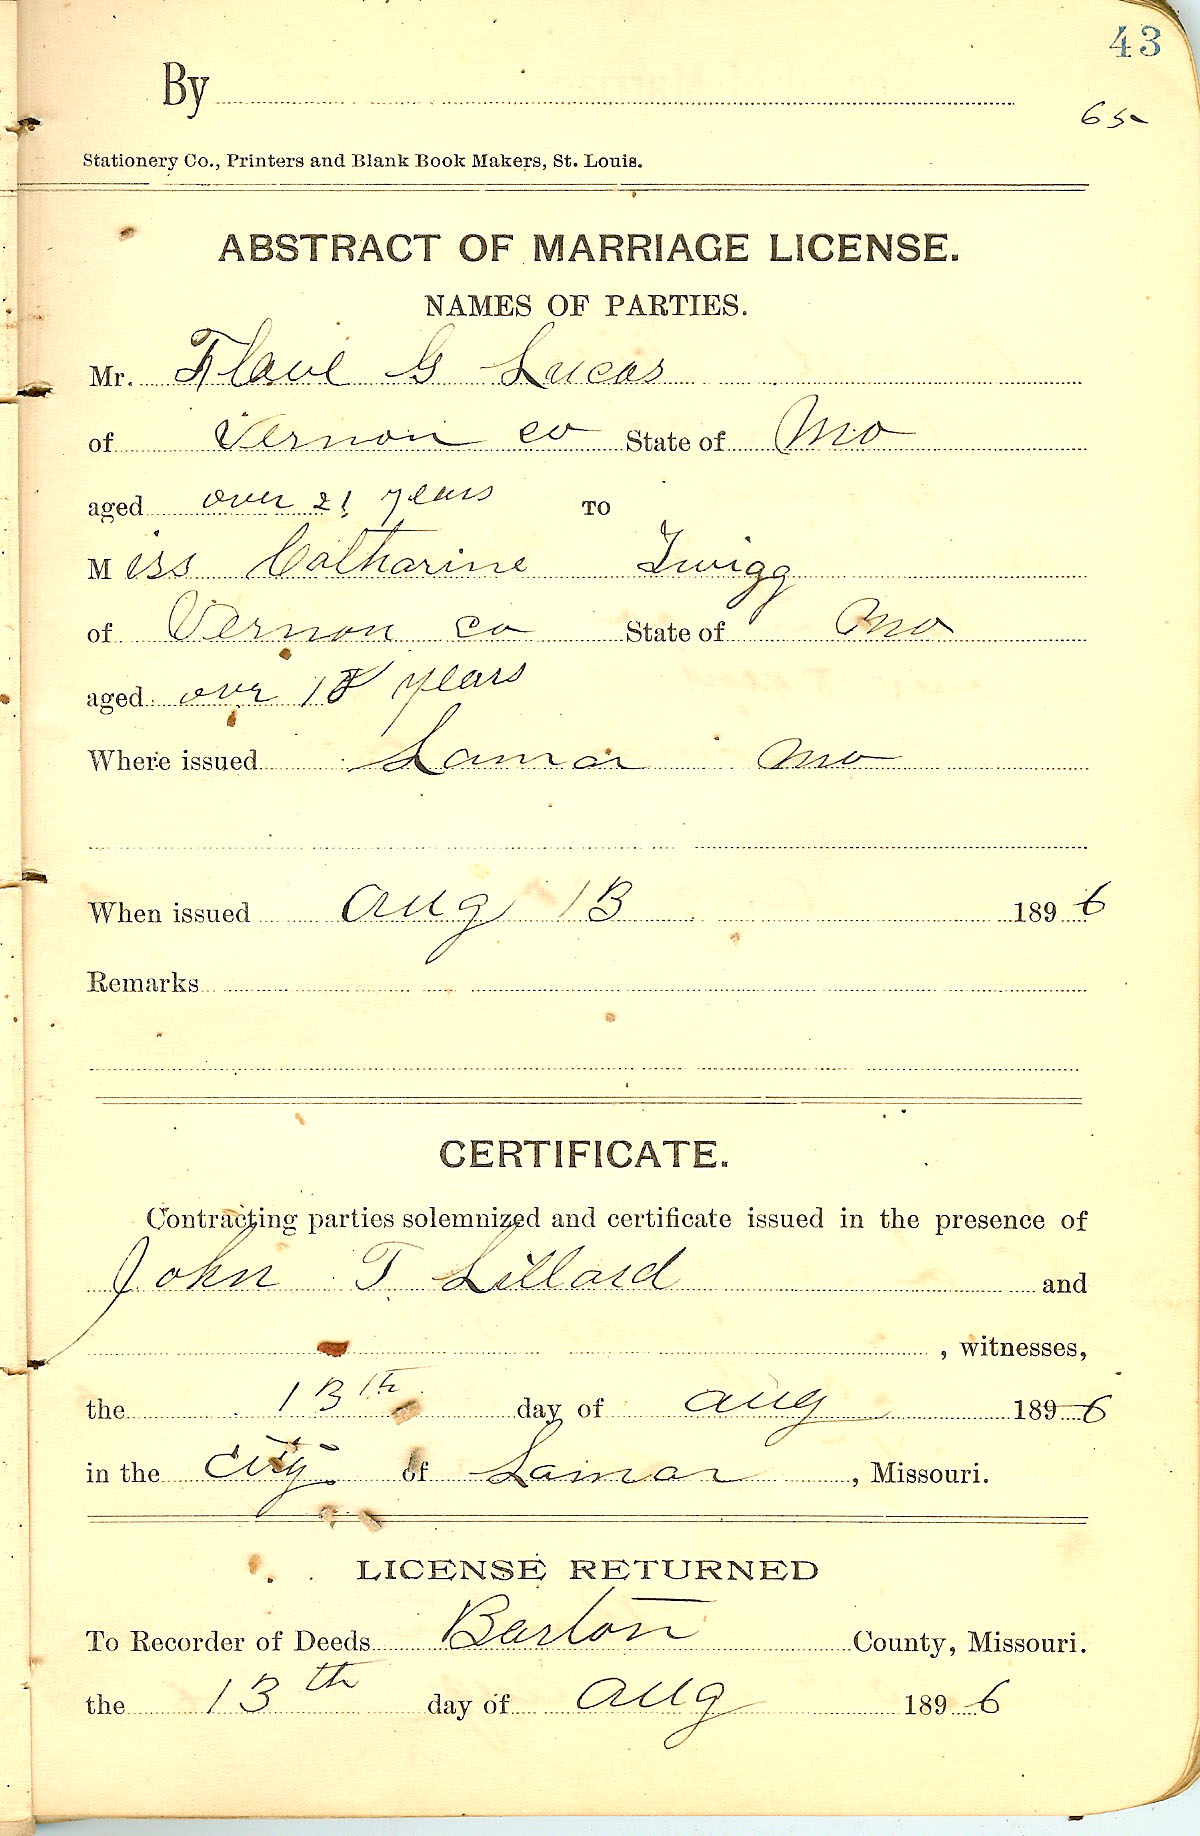 43
By
65
Stationery Co., Printers and Blank Book Makers, St. Louis.
ABSTRACT OF MARRIAGE LICENSE.
NAMES OF PARTIES.
Mr. Flave G Lucas
of Vernon co State of Mo
aged over 21 years TO
Miss Catharine Twigg
of Vernon co State of Mo
aged over 18 years
Where issued Lamar Mo
When issued Aug 13 1896
Remarks
CERTIFICATE.
Contracting parties solemnized and certificate issued in the presence of
John T. Lillard and
, witnesses,
the 13th day of Aug 1896
in the City of Lamar, Missouri.
LICENSE RETURNED
To Recorder of Deeds Barton County, Missouri.
the 13th day of Aug 1896